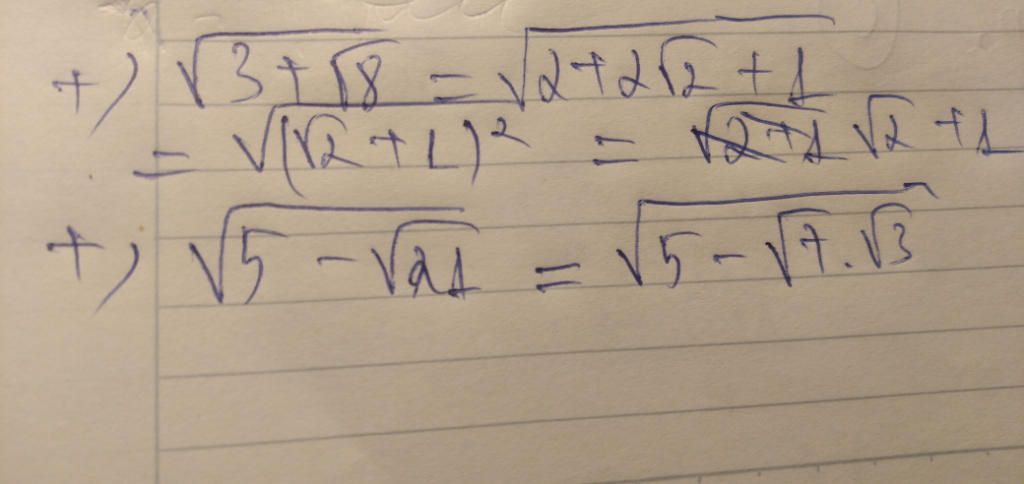 +) √(3 + √8) = √(2 + 2√2 + 1)
= √((√2 + 1)²) = √2 + 1
+) √(5 - √21) = √(5 - √7.√3)